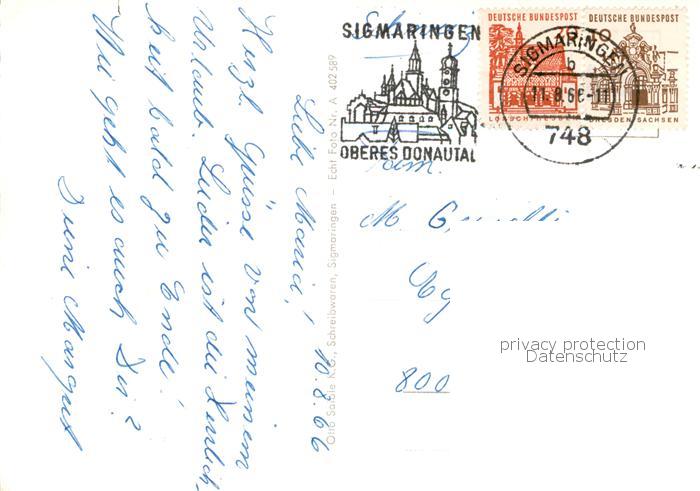 SIGMARINGEN
OBERES DONAUTAL
DEUTSCHE BUNDESPOST
DEUTSCHE BUNDESPOST
SIGMARINGEN
b
11.-8.66-11
748
Liebe Maria! 10.8.66
Herzl. Grüsse von meinem
Urlaub. Leider ist die Herrlich-
keit bald zu Ende!
Wie geht es auch Dir?
Deine Margret
Otto Saible K.G., Schreibwaren, Sigmaringen - Echt Foto Nr. A 402589
Fam.
M.
800
privacy protection
Datenschutz